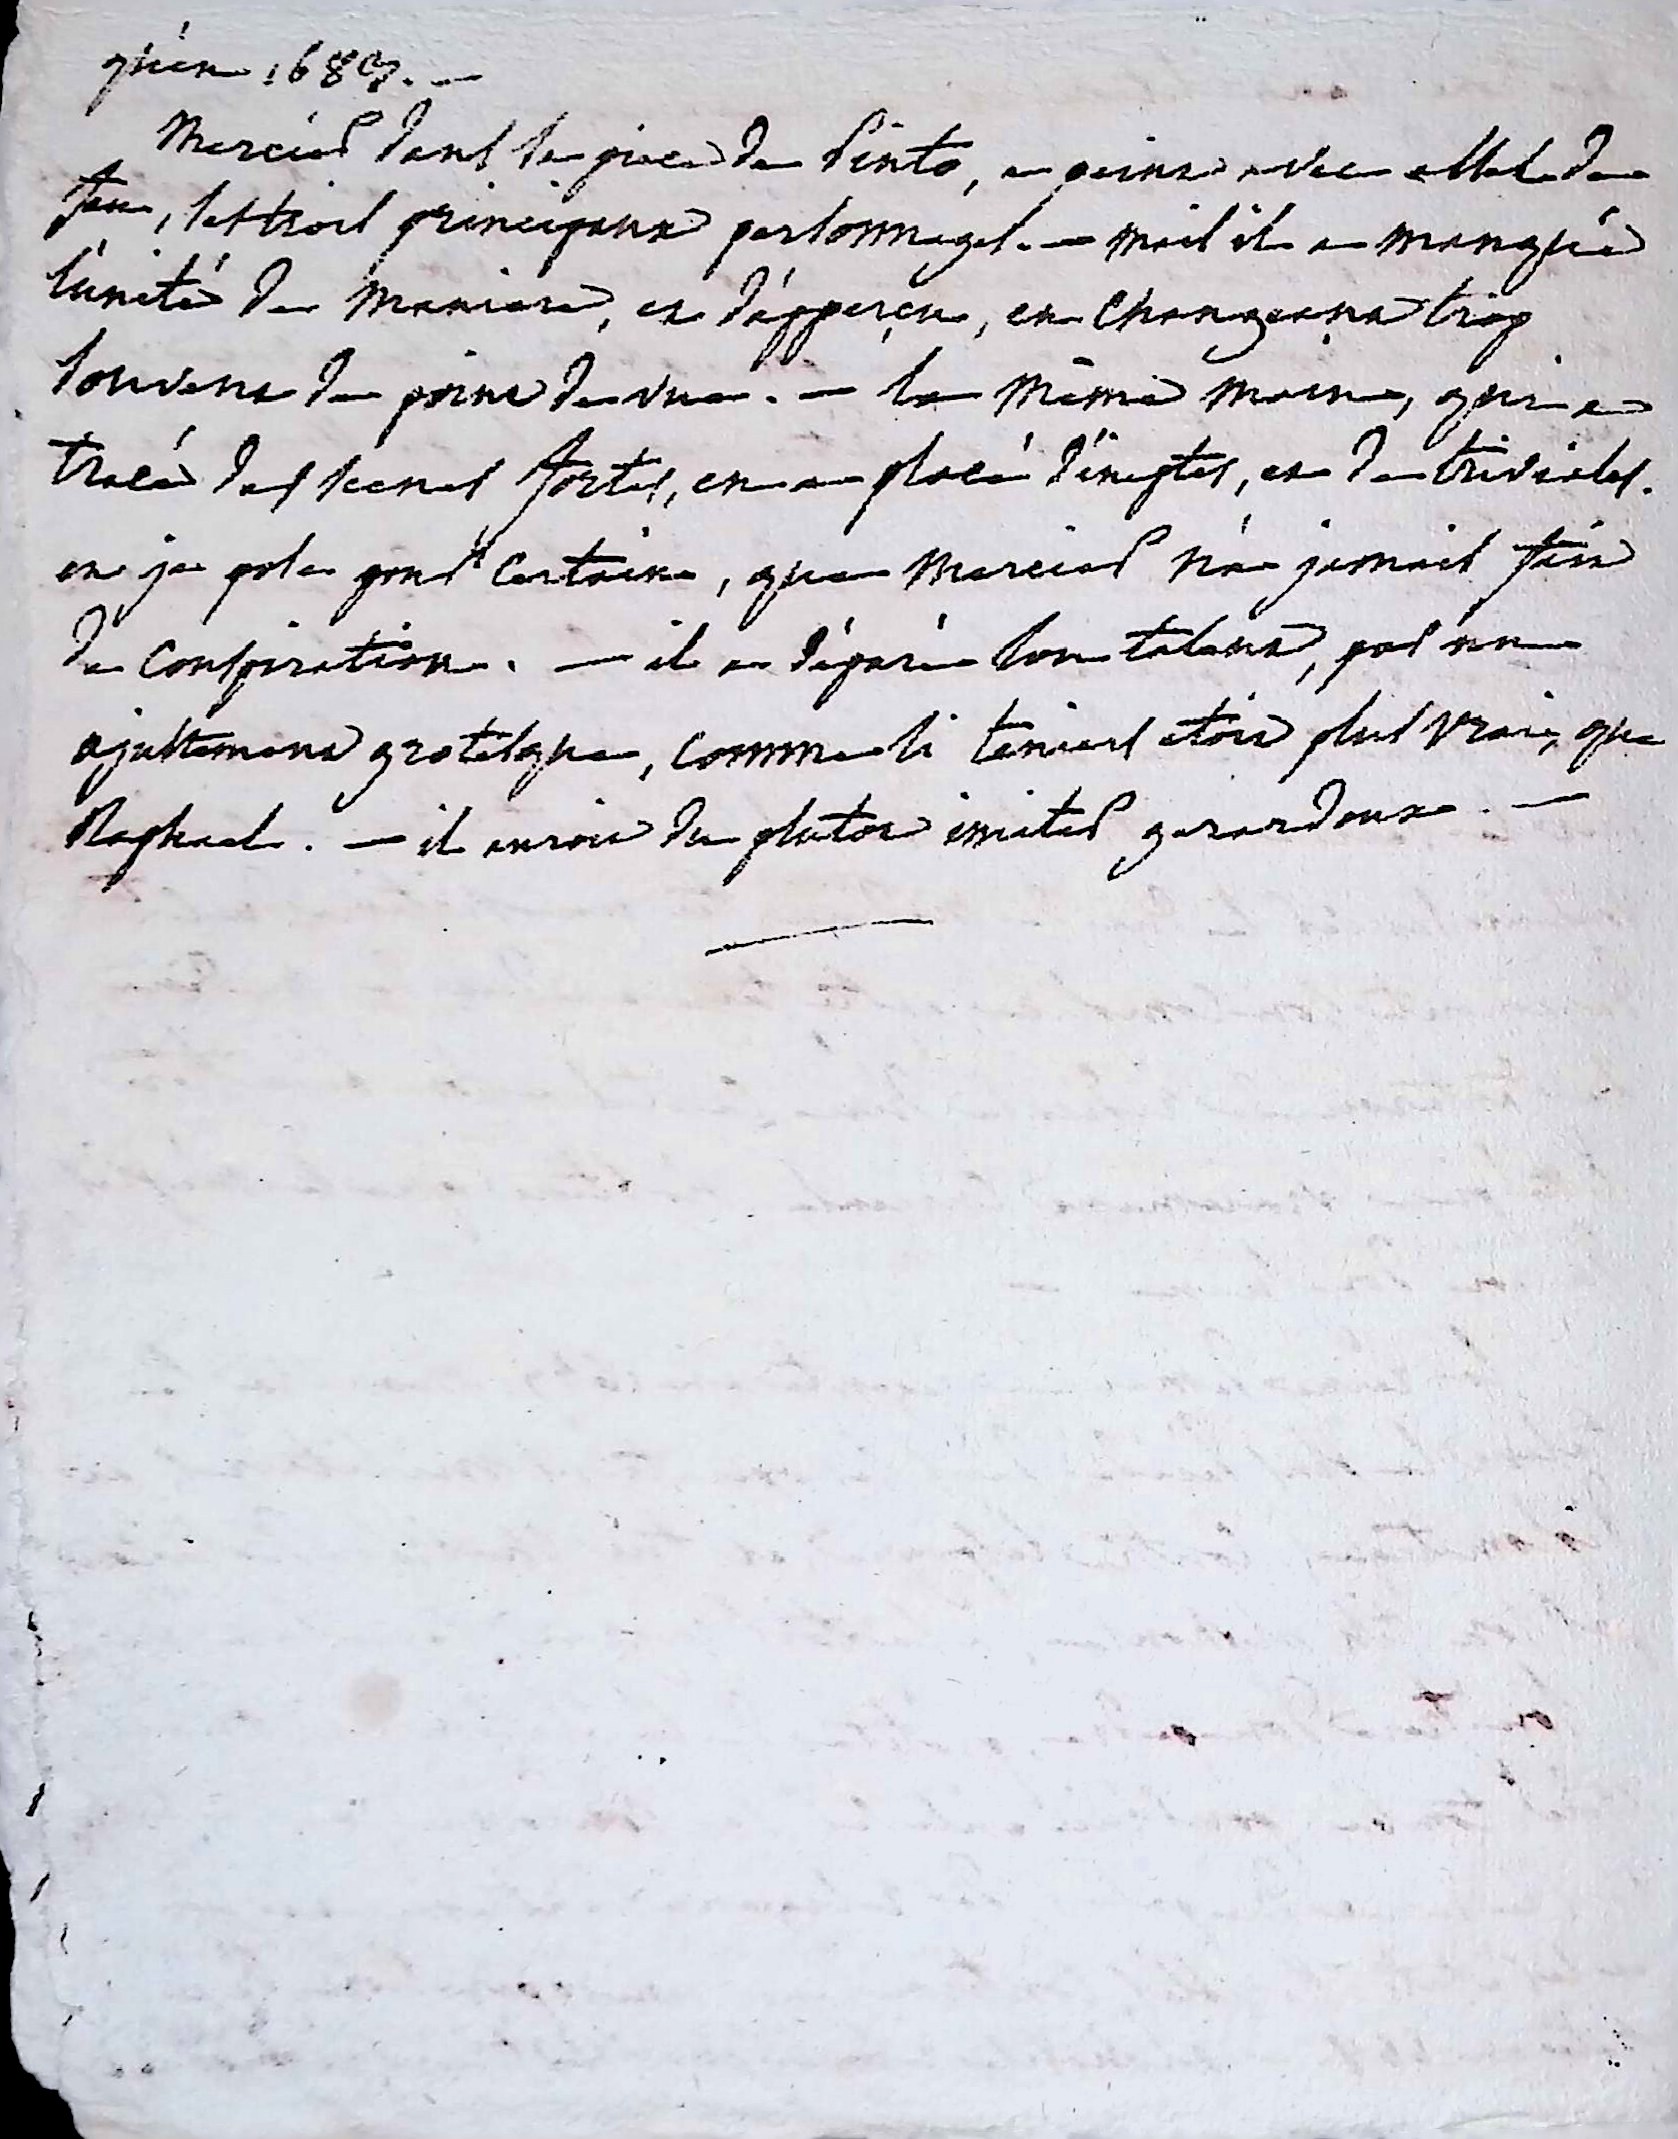 qu'en 1689. —
Mercier dans la piece de Pinto, a peint avec assez de
feu, les trois principaux personnages. — mais il a manqué
l'unité de maniere, et d'apperçu, en changeant trop
souvent de point de vue. — la même main, qui a
tracé des scenes fortes, en a placé d'ineptes, et de triviales.
et je pose pour certain, que Mercier n'a jamais fait
de conspiration. — il a déparé son talent, par un
ajustement grotesque, comme si teniers etoit plus vrai, que
Raphael. — il auroit du plutot imiter gerardoux. —